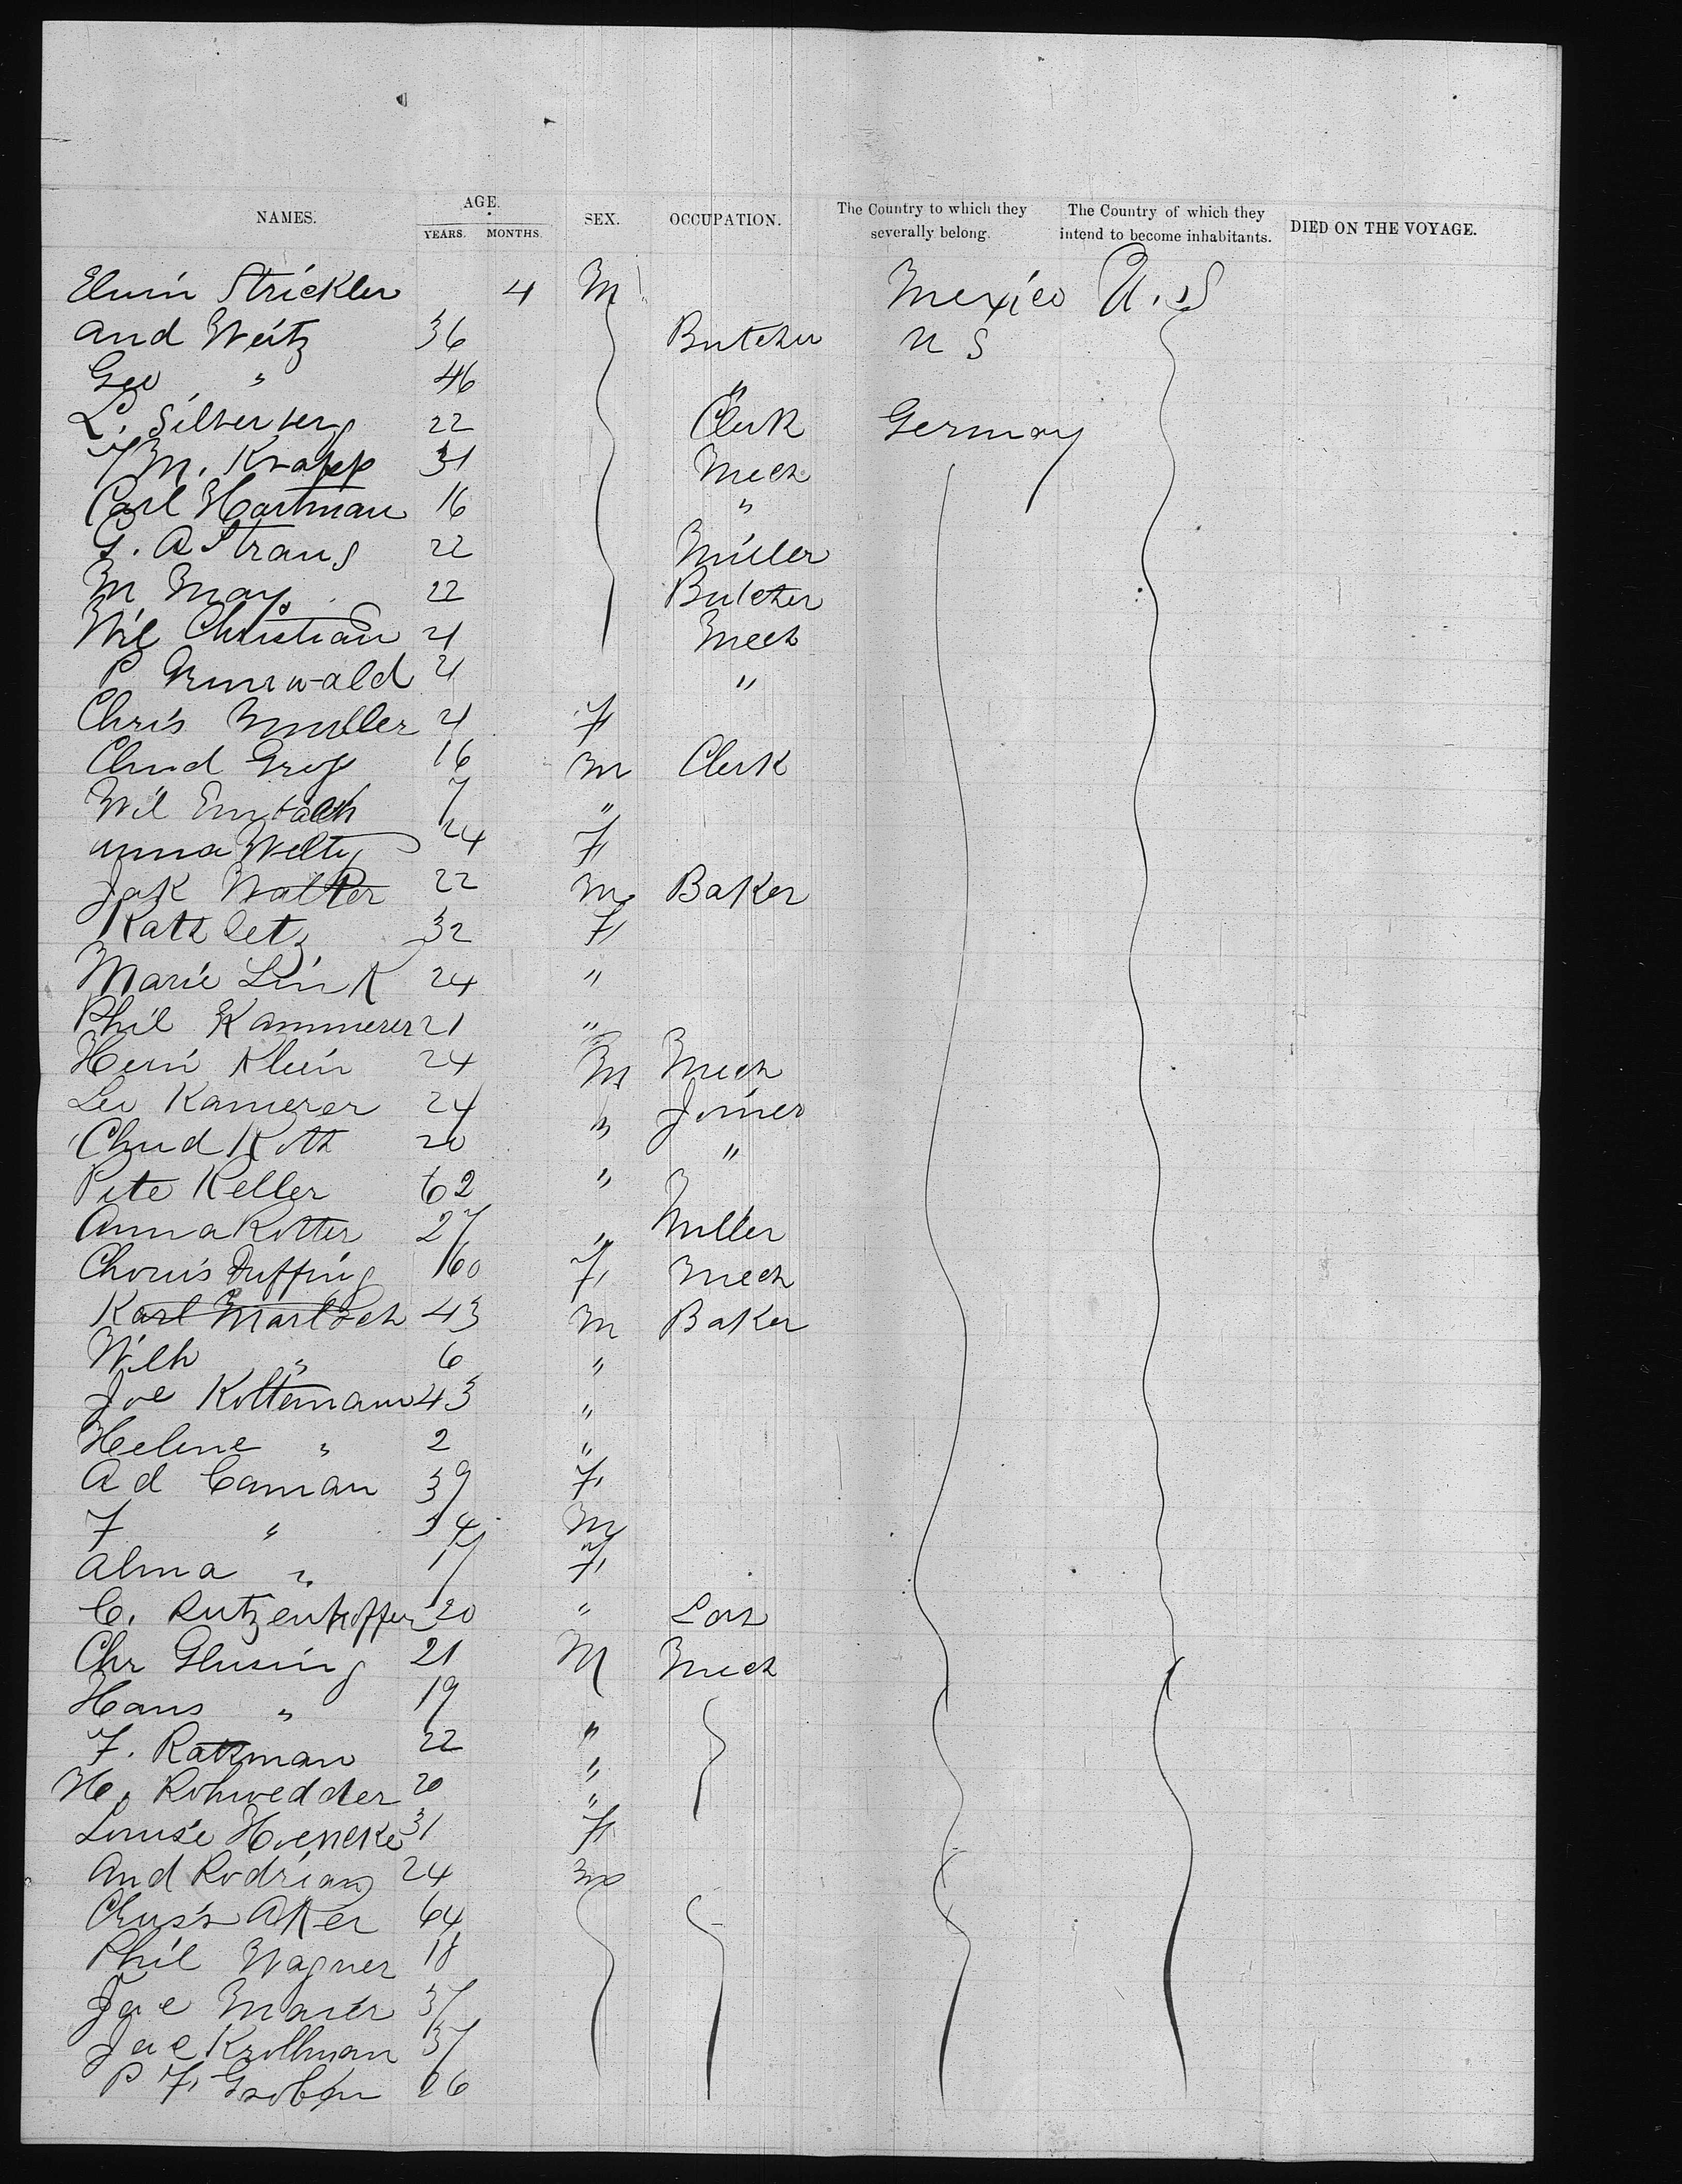 NAMES. AGE. YEARS. MONTHS. SEX. OCCUPATION. The Country to which they severally belong. The Country of which they intend to become inhabitants. DIED ON THE VOYAGE.
Elwin Strickler 4 M Mexico U.S
And Weitz 36 Butcher U S
Geo " 46 "
L. Silberberg 22 Clerk Germany
F M. Knapp 31 Mech
Carl Hartman 16 "
G. A Straus 22 Miller
M May 22 Butcher
Wil Christian 21 Mech
P Grunwald 21 "
Chris Muller 21 F
Chud Gross 16 M Clerk
Wil Embach 7 "
Anna Welty 24 F
Jak Walter 22 M Baker
Kath Letz 32 F
Marie Link 24 "
Phil Kammerer 21 "
Hein Klein 24 M Mech
Leo Kamerer 24 " Joiner
Chud Roth 20 "
Pete Keller 62 "
Anna Rotter 27 " Miller
Chris Duffing 60 F Mech
Karl 43 M Baker
Wilh " 6 "
Joe Kottemann 43 "
Helene " 2 "
Ad Caman 39 F
F " 34 M
Alma " 17 F
C. Rutzenhoffer 20 "
Chr Glusing 21 M Mech
Hans " 19
F. Rathman 22 "
H. Rohwedder 20 "
Louise Hoencke 31 F
And Rodrian 24 M
Aker 64
Phil Wagner 18
Jac Maier 37
Jac Krollman 37
P F 26